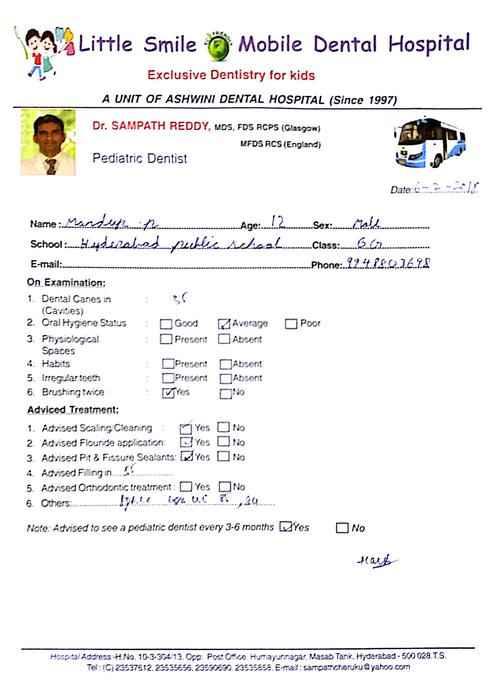 Little Smile Mobile Dental Hospital
Exclusive Dentistry for kids
A UNIT OF ASHWINI DENTAL HOSPITAL (Since 1997)
Dr. SAMPATH REDDY, MDS, FDS RCPS (Glasgow)
MFDS RCS (England)
Pediatric Dentist
Date:
Name: Age: 12 Sex: Male
School: Hyderabad public school Class: 6 G
E-mail: Phone:
On Examination:
1. Dental Caries in (Cavities) :
2. Oral Hygiene Status : Good Average Poor
3. Physiological Spaces : Present Absent
4. Habits : Present Absent
5. Irregular teeth : Present Absent
6. Brushing twice : Yes No
Adviced Treatment:
1. Advised Scaling/Cleaning : Yes No
2. Advised Flouride application: Yes No
3. Advised Pit & Fissure Sealants: Yes No
4. Advised Filling in
5. Advised Orthodontic treatment : Yes No
6. Others:
Note: Advised to see a pediatric dentist every 3-6 months Yes No
Hospital Address -H.No. 10-3-304/13, Opp. Post Office, Humayunnagar, Masab Tank, Hyderabad - 500 028.T.S.
Tel : (C) 23537612, 23535656, 23590690, 23535858. E-mail : sampathcheruku@yahoo.com